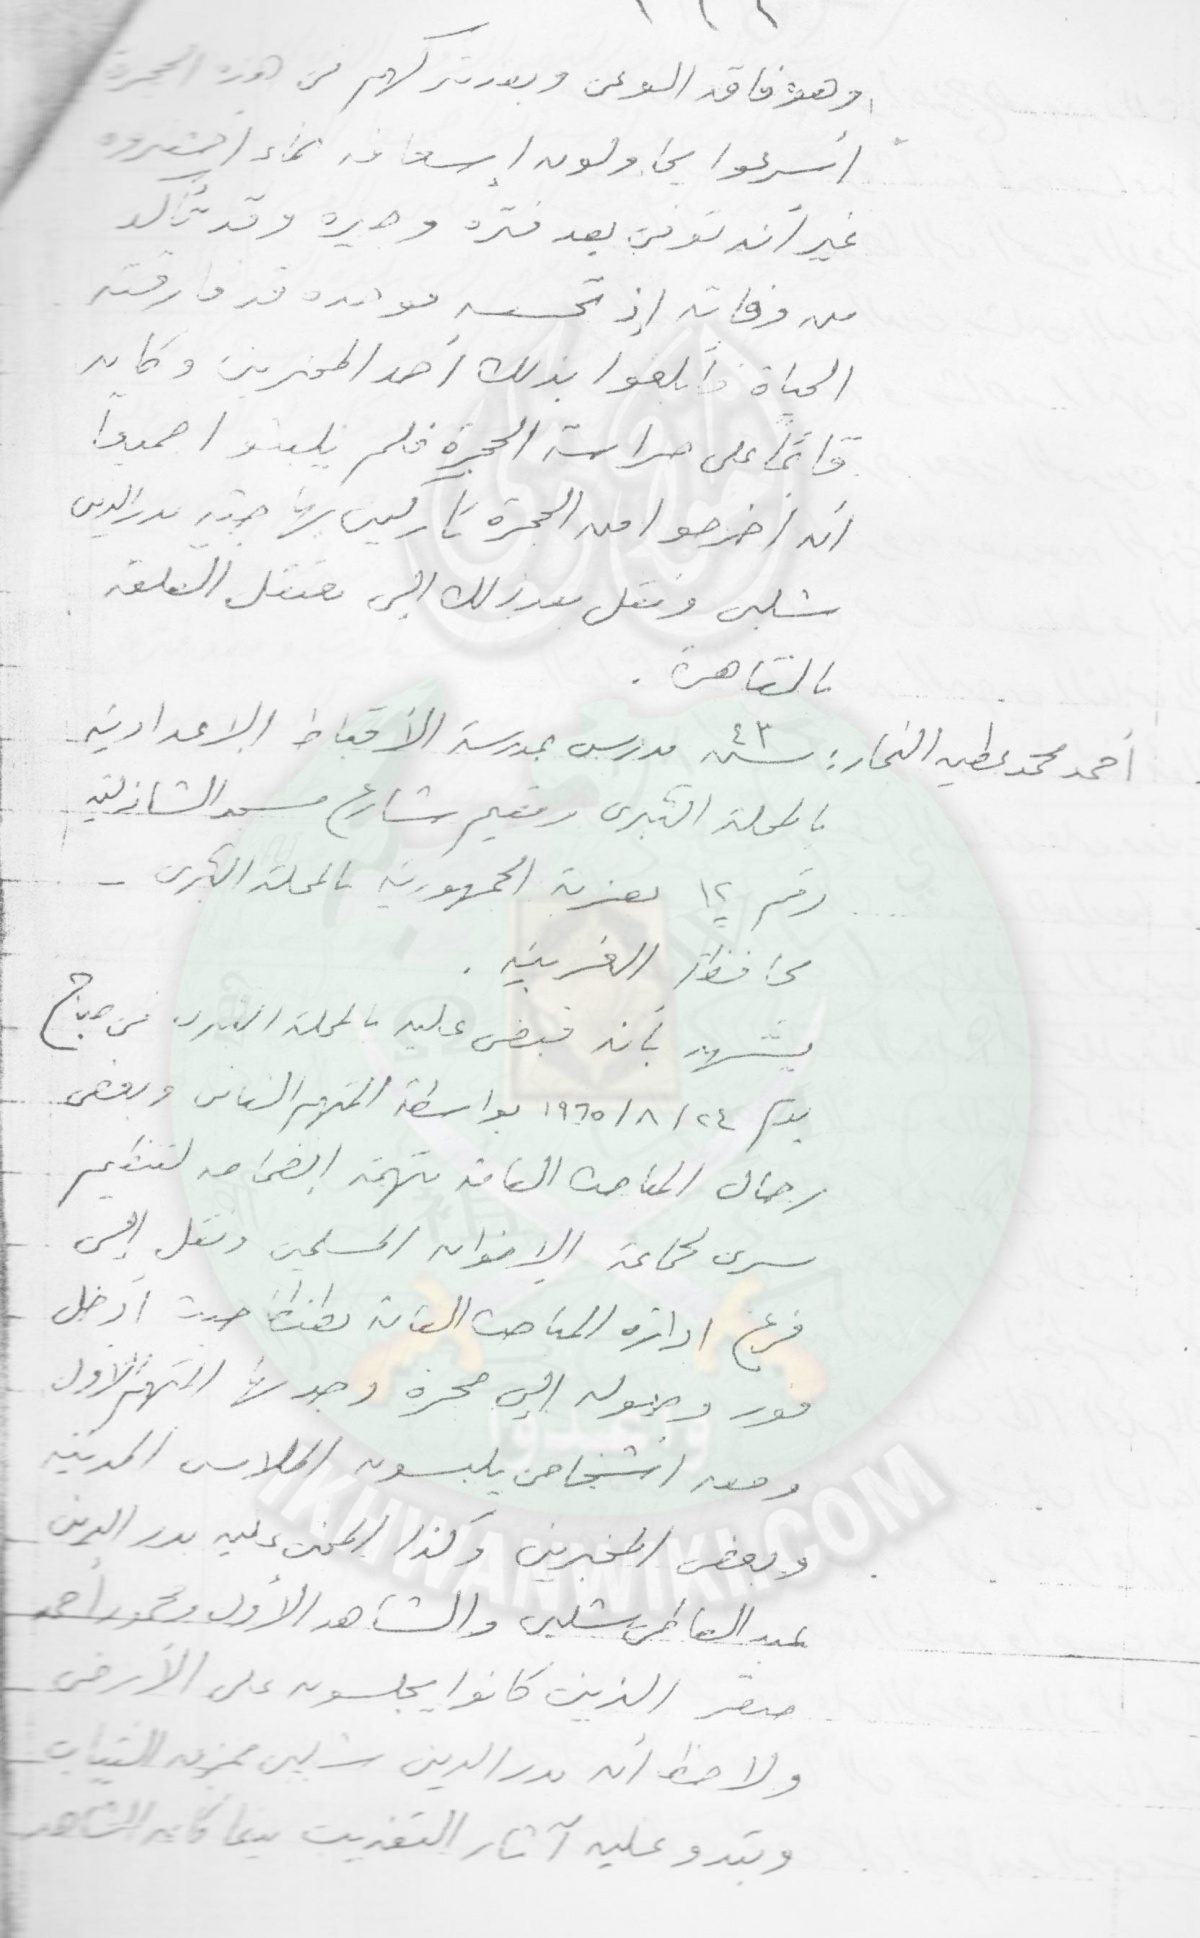 وهو فاقد الوعى وبعد تركهم فى هذه الحجرة
أسرعوا يحاولون إسعافه بماء أحضروه
غير أنه توفى بعد فترة وجيزة وقد تأكد
من وفاته إذ تحسسه فوجده قد فارقته
الحياة فأبلغوا بذلك أحد المخبرين وكان
قائماً على حراسة الحجرة فلم يلبثوا جميعاً
أن أخرجوا من الحجرة تاركين بها جثة بدر الدين
شلبى ونقل بعد ذلك إلى معتقل القلعة
بالقاهرة .
أحمد محمد عطيه النجار : سنه ٤٣ مدرس بمدرسة الأقباط الإعدادية
بالمحلة الكبرى ومقيم شارع مسجد الشاذلية
رقم ١٢ بعزبة الجمهورية بالمحلة الكبرى -
محافظة الغربية .
يشهد بأنه قبض عليه بالمحلة الكبرى فى صباح
يوم ٢٤/ ٨/ ١٩٦٥ بواسطة المتهم الثانى وبعض
رجال المباحث العامة بتهمة إنضمامه لتنظيم
سرى لجماعة الإخوان المسلمين ونقل إلى
فرع إدارة المباحث العامة بطنطا حيث أدخل
فور وصوله إلى حجرة وجد بها المتهم الأول
ومعه أشخاص يلبسون الملابس المدنية
وبعض المخبرين وكذا المجنى عليه بدر الدين
عبد العاطى شلبى والشاهد الأول ومحمود أحمد
صقر الذين كانوا يجلسون على الأرض
ولاحظ أن بدر الدين شلبى ممزق الثياب
وتبدو عليه آثار التعذيب بينما كان الشاهد
IKHWANWIKI.COM
وأعدوا